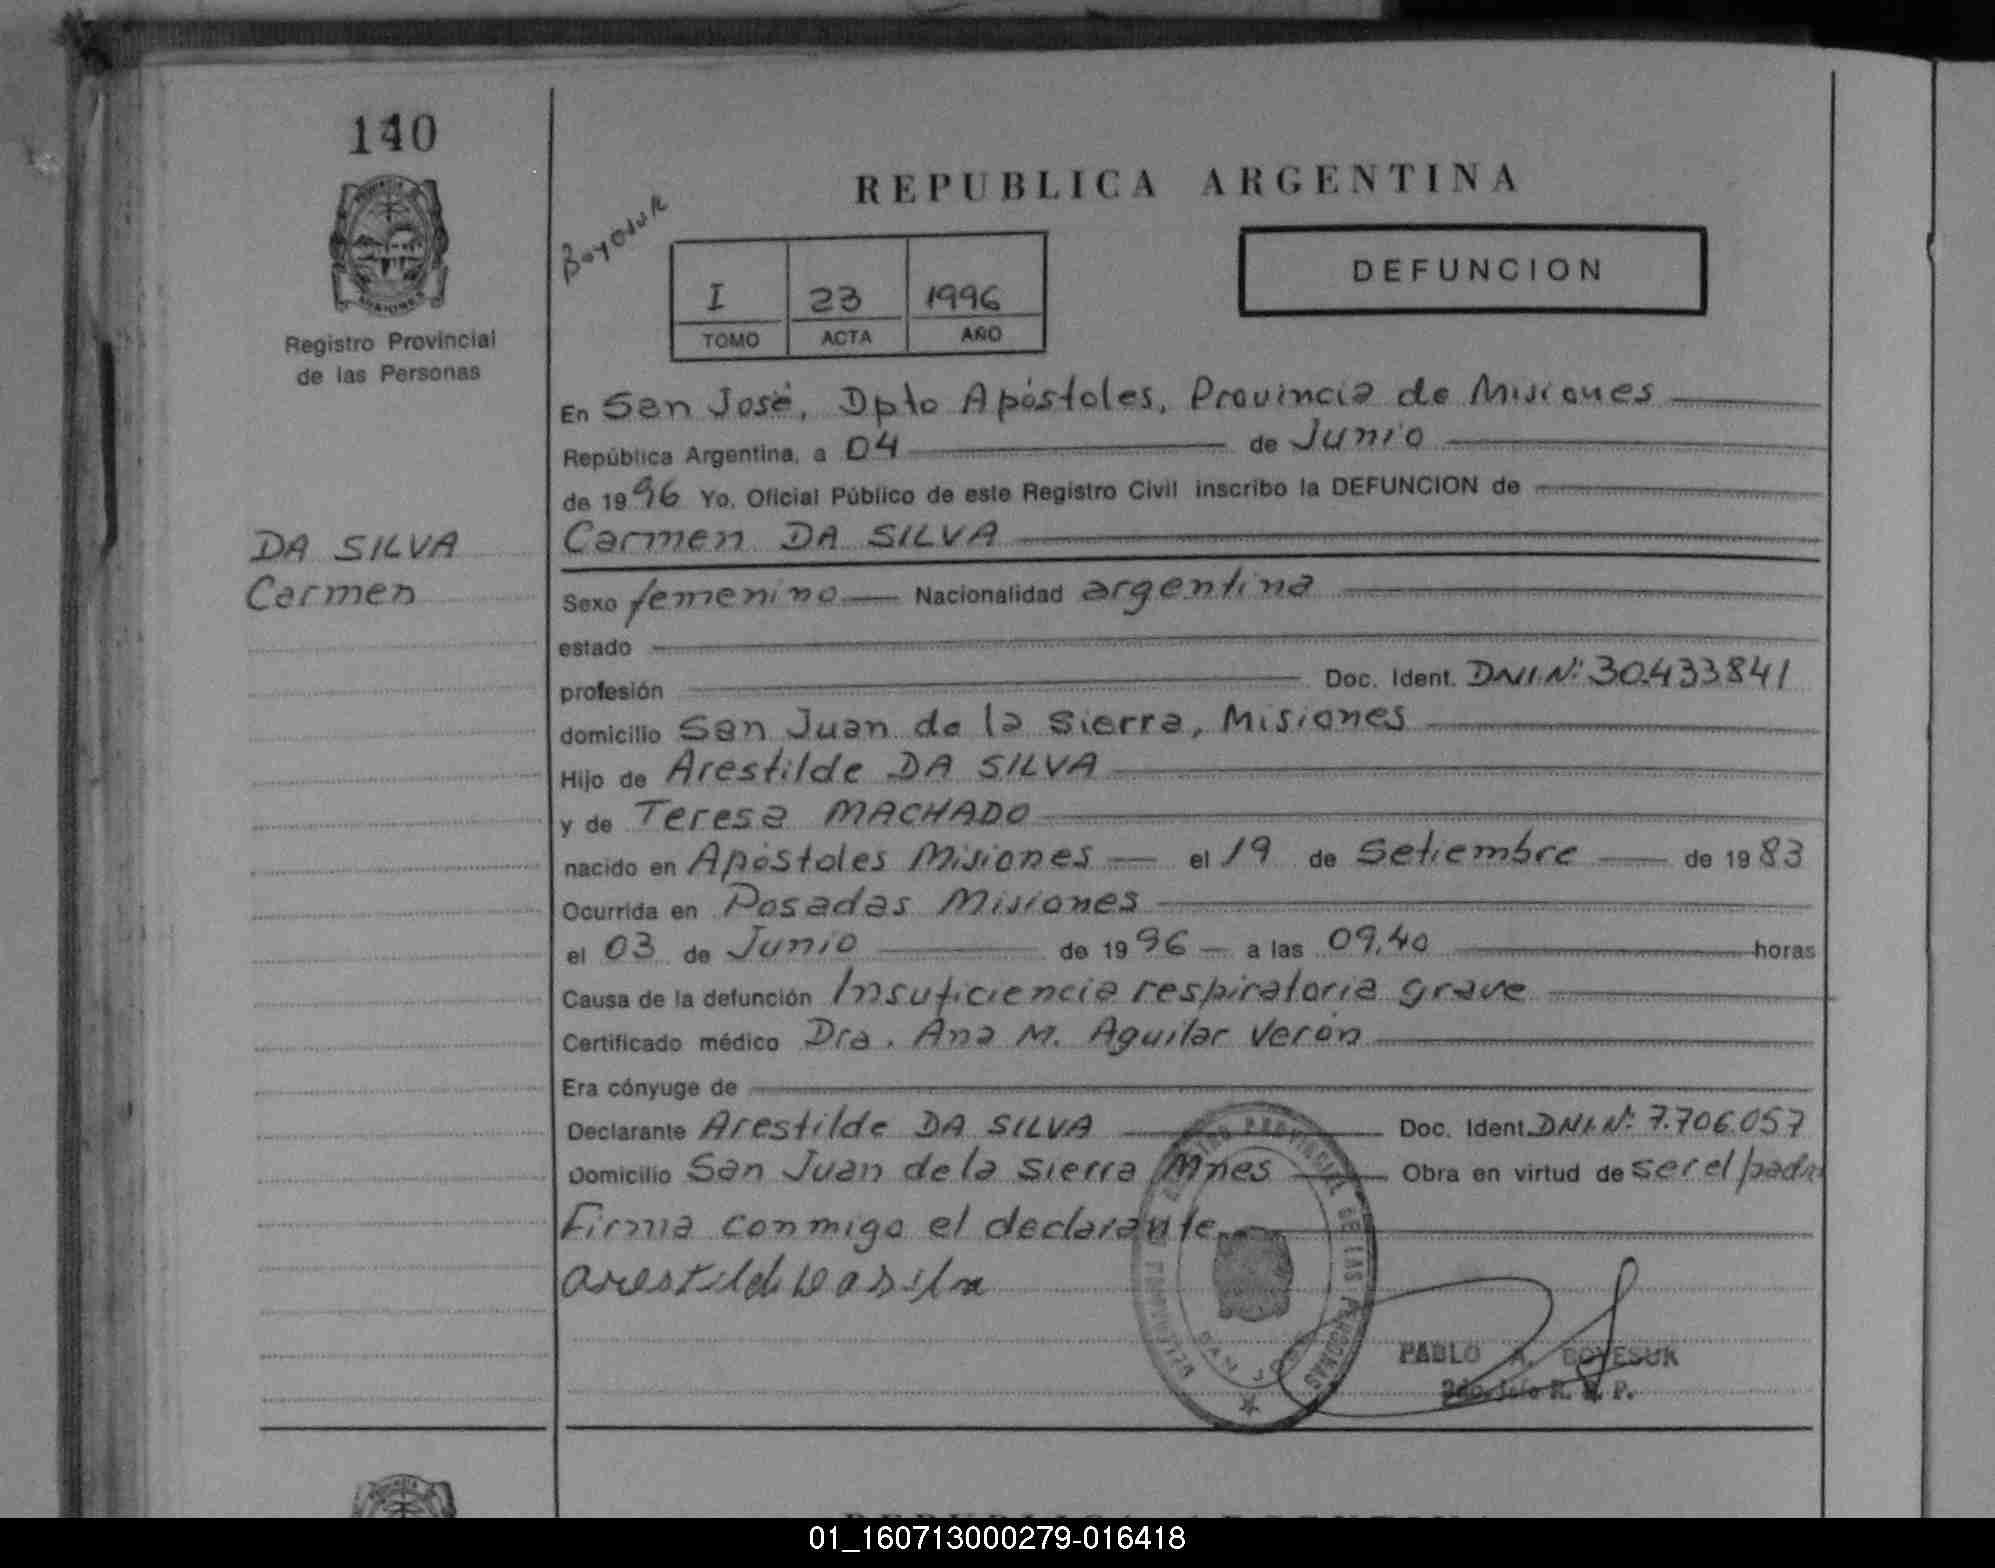 140
Registro Provincial
de las Personas
DA SILVA
Carmen
REPUBLICA ARGENTINA
Boyesuk
DEFUNCION
I 23 1996
TOMO ACTA AÑO
En San José, Dpto Apóstoles, Provincia de Misiones
República Argentina, a 04 de Junio
de 1996 Yo, Oficial Público de este Registro Civil inscribo la DEFUNCION de
Carmen DA SILVA
Sexo femenino Nacionalidad argentina
estado
profesión Doc. Ident. DNI.Nº 30.433.841
domicilio San Juan de la Sierra, Misiones
Hijo de Arestilde DA SILVA
y de Teresa MACHADO
nacido en Apóstoles Misiones el 19 de Setiembre de 1983
Ocurrida en Posadas Misiones
el 03 de Junio de 1996 a las 09,40 horas
Causa de la defunción Insuficiencia respiratoria grave
Certificado médico Dra. Ana M. Aguilar Verón
Era cónyuge de
Declarante Arestilde DA SILVA Doc. Ident. DNI.Nº 7.706.057
Domicilio San Juan de la Sierra Mnes Obra en virtud de ser el padre
Firma conmigo el declarante
Arestilde Da Silva
REGISTRO PROVINCIAL DE LAS PERSONAS
SAN JOSE
PABLO A. BOYESUK
2do. Jefe R. P. P.
01_160713000279-016418